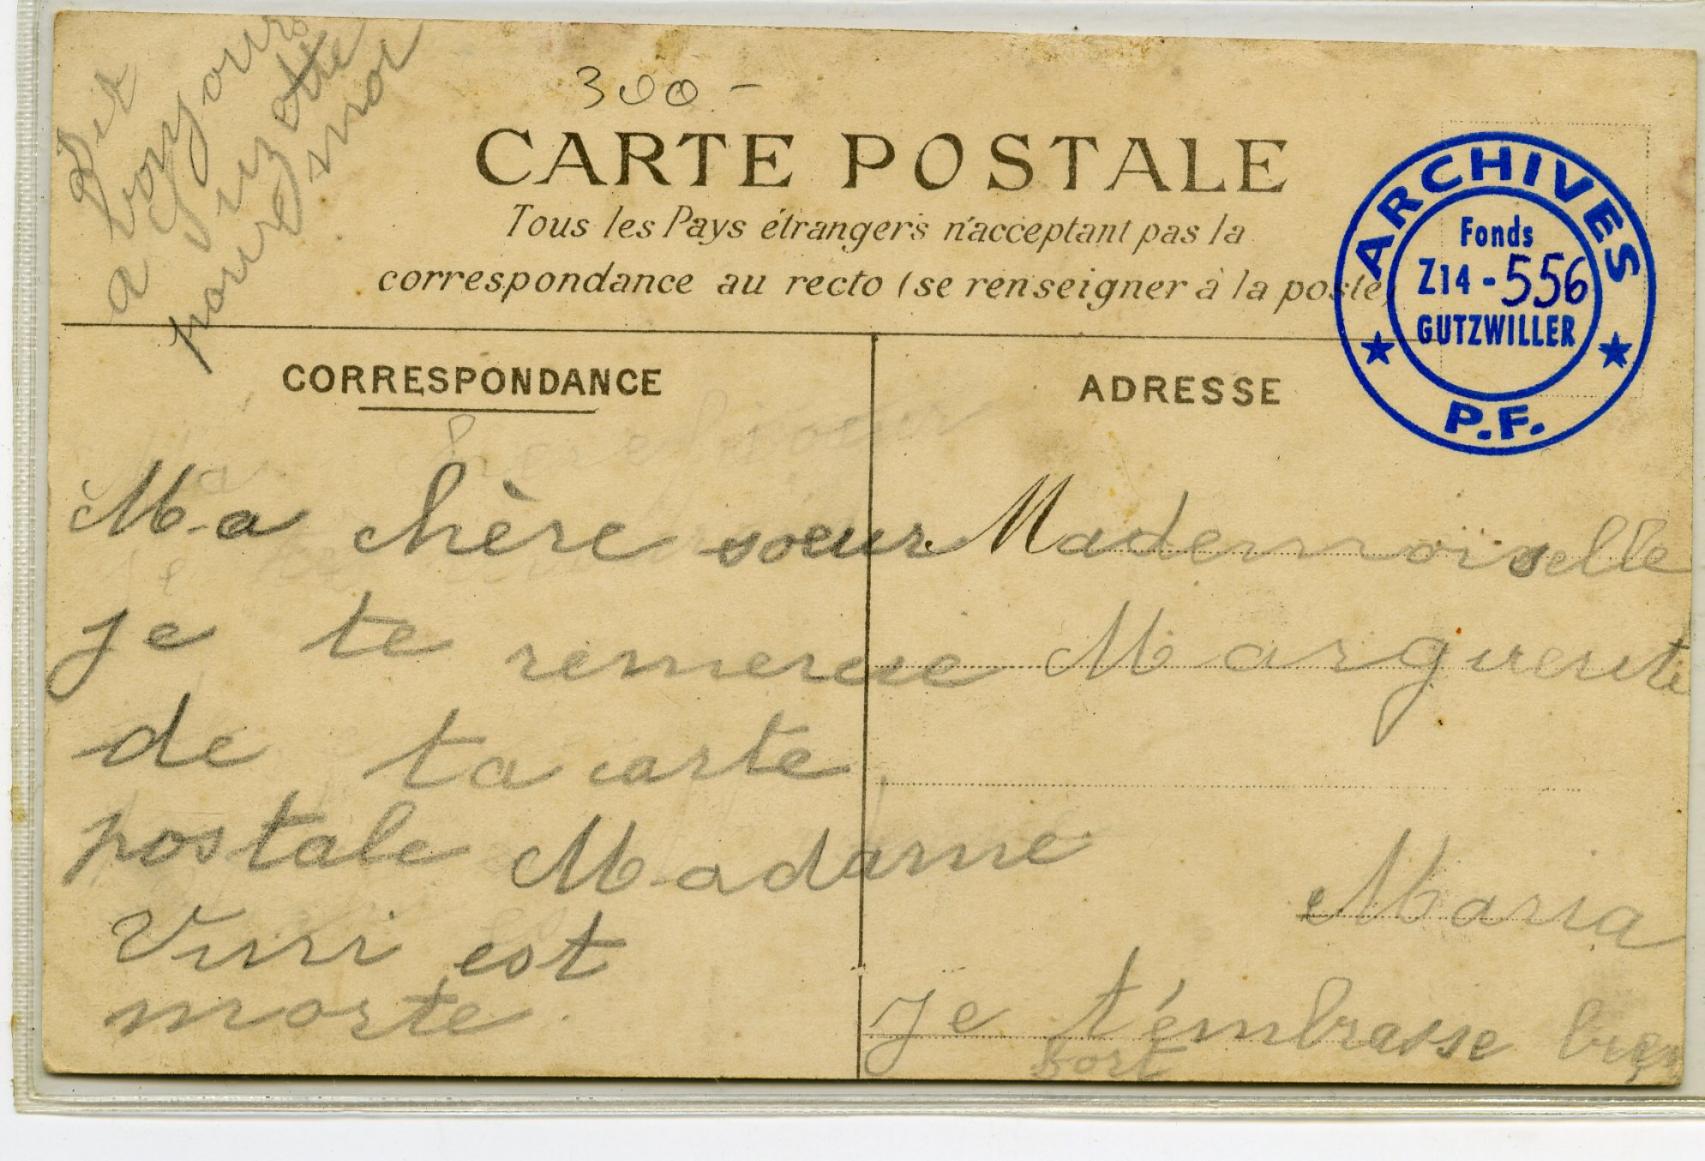 Dit
bonjours
a Suzotte
pour moi
300 -
CARTE POSTALE
Tous les Pays étrangers n'acceptant pas la
correspondance au recto (se renseigner à la poste)
ARCHIVES
Fonds
Z14 - 556
GUTZWILLER
P.F.
CORRESPONDANCE
Ma chère soeur
je te remercie
de ta carte
postale Madame
Vini est
morte.
ADRESSE
Mademoiselle
Marguerite
Maria
Je t'émbrasse bien
fort